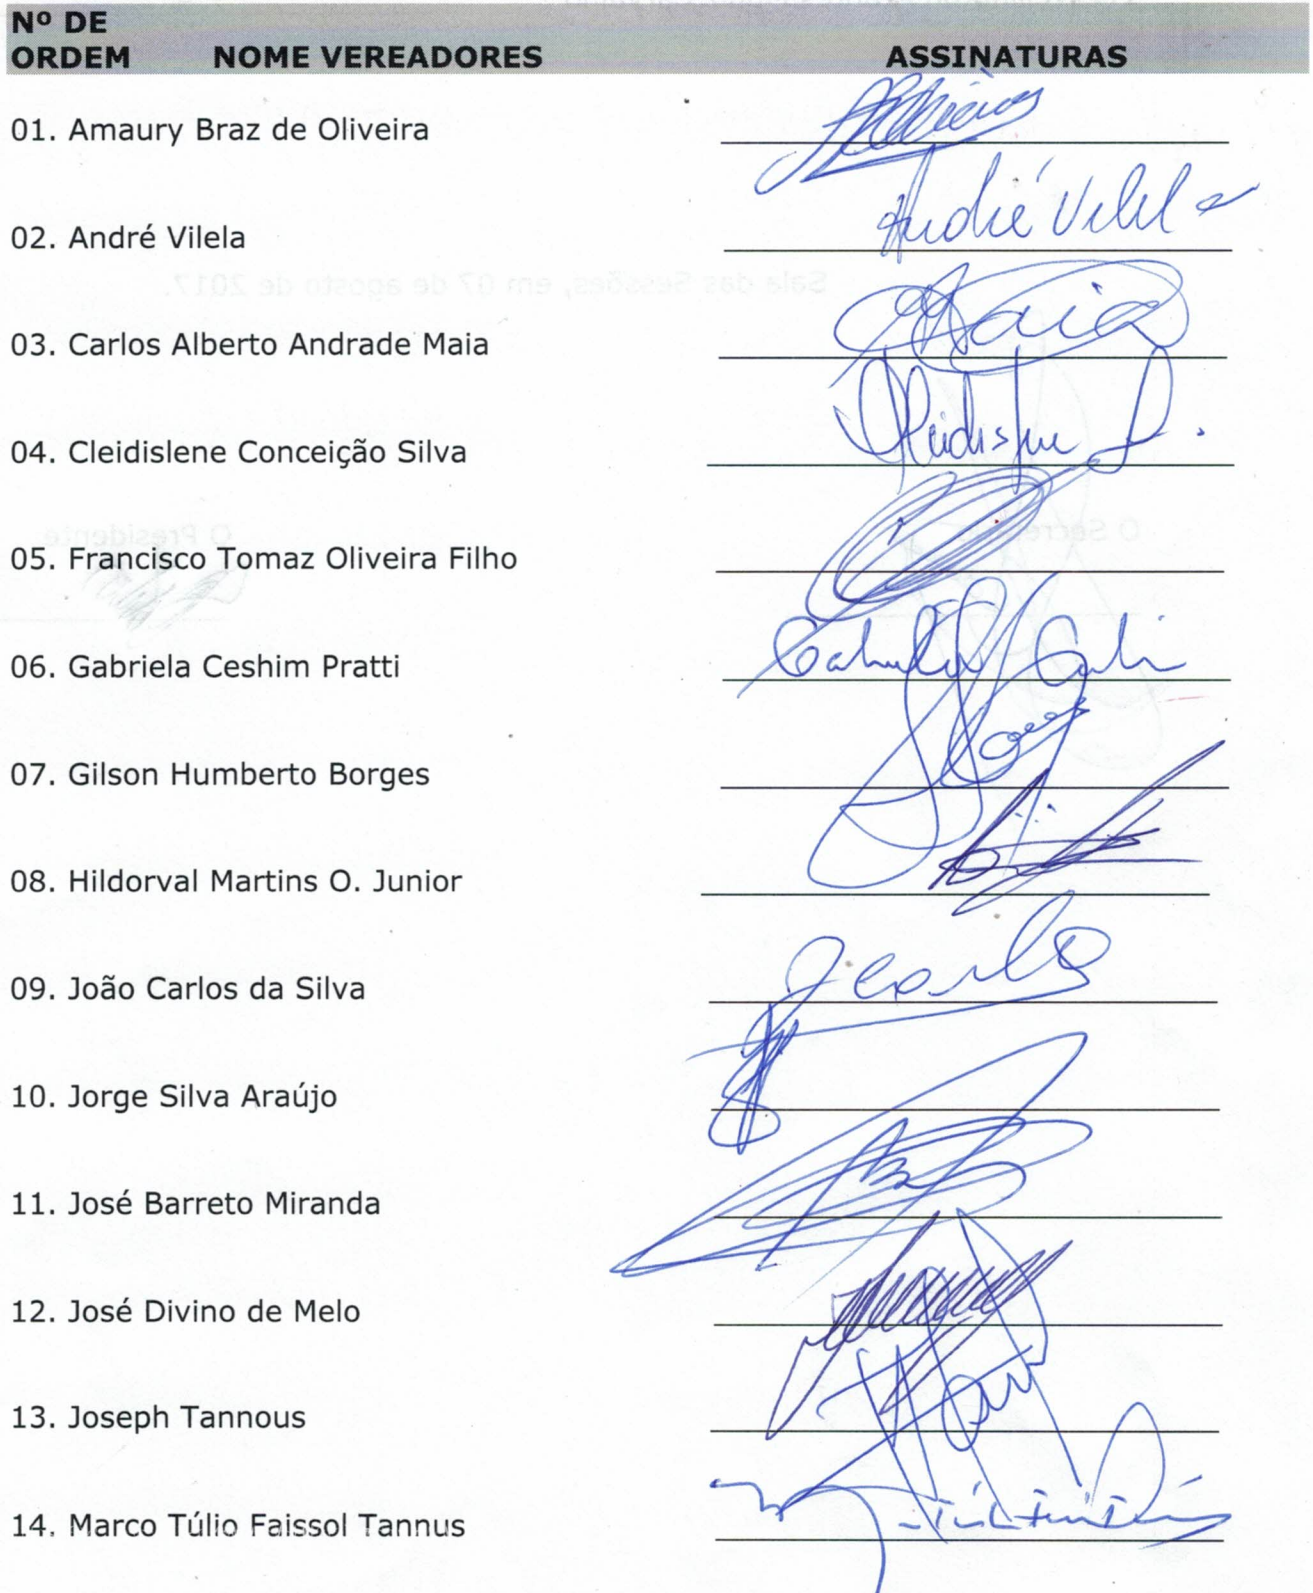 Nº DE
ORDEM NOME VEREADORES ASSINATURAS
01. Amaury Braz de Oliveira
02. André Vilela André Vilela
Sala das Sessões, em 07 de agosto de 2017.
03. Carlos Alberto Andrade Maia Maia
04. Cleidislene Conceição Silva
O Presidente
05. Francisco Tomaz Oliveira Filho
06. Gabriela Ceshim Pratti
07. Gilson Humberto Borges
08. Hildorval Martins O. Junior
09. João Carlos da Silva JCarlos
10. Jorge Silva Araújo
11. José Barreto Miranda
12. José Divino de Melo
13. Joseph Tannous
14. Marco Túlio Faissol Tannus